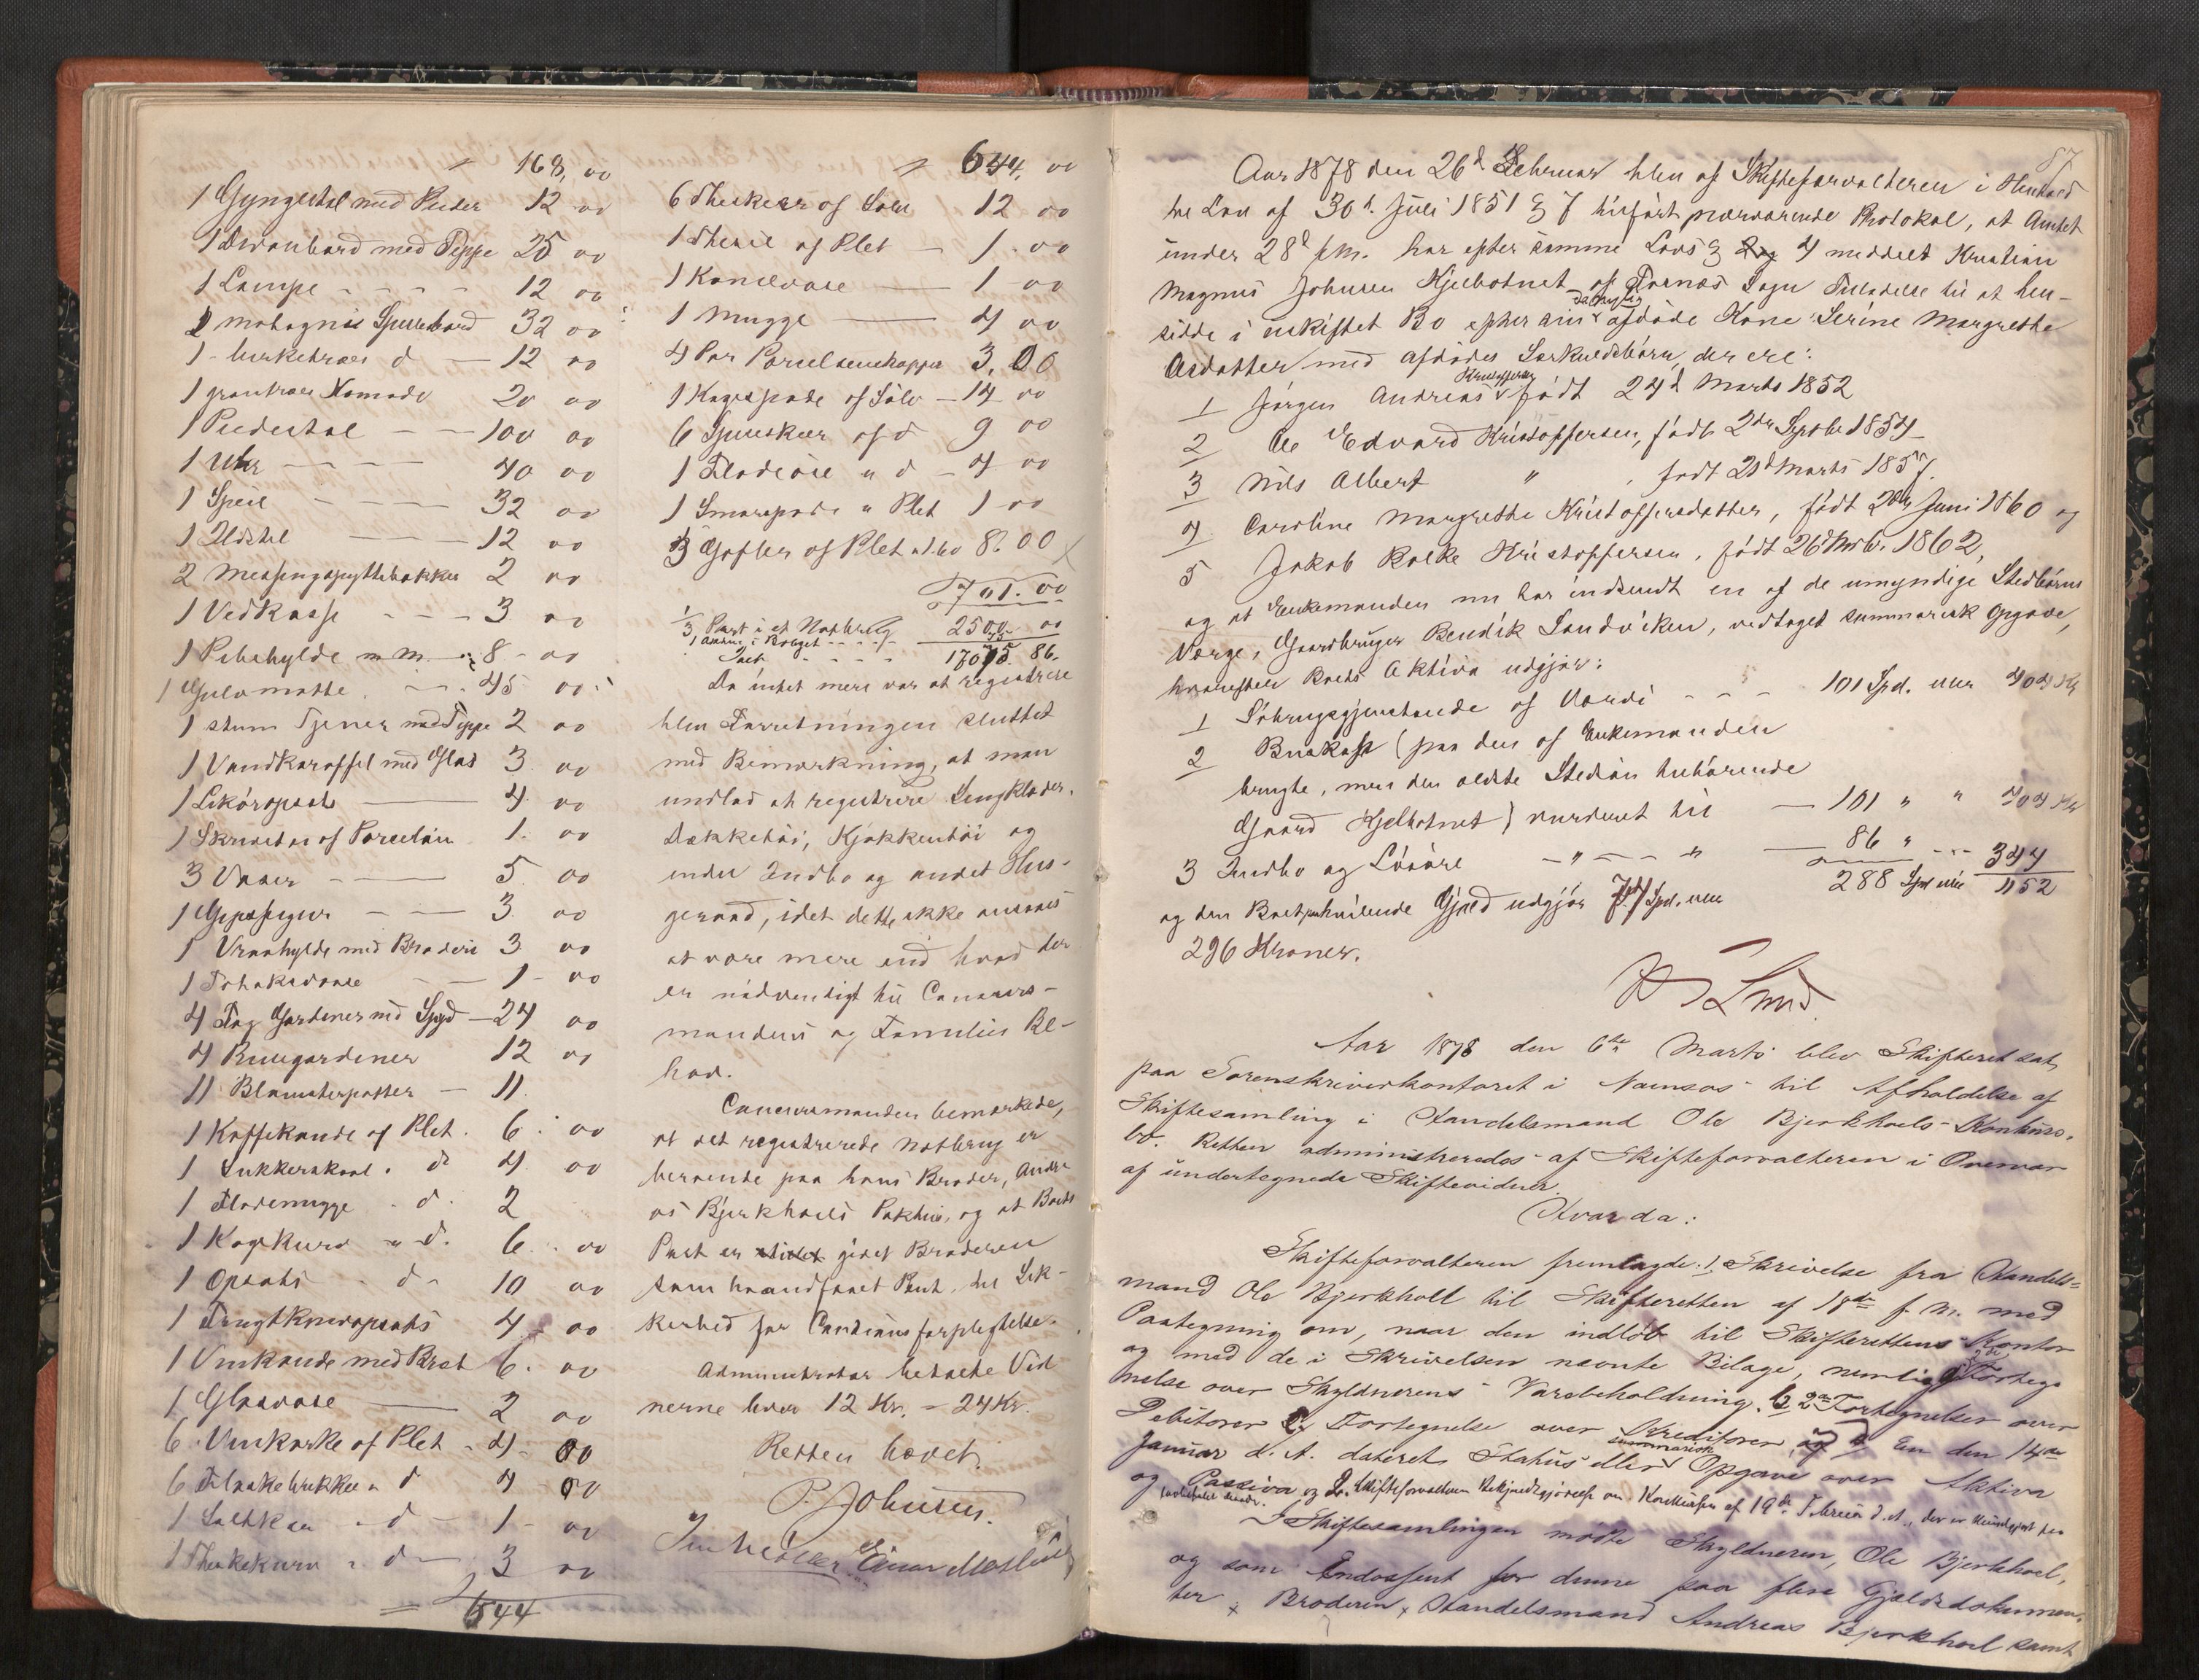 168, 00
1 Gyngestol med Puder 12 00
1 Divanbord med Teppe 25 00
1 Lampe - - - - 12 00
1 mahogni Spillebord 32 00
1 - birketræes d - 12 00
1 grantræes Komode 20 00
1 Piedestal - - 100 00
1 Uhr - - - 40 00
1 Speil - - - 32 00
1 Ildstel - - - 12 00
2 Messingspyttebakker 2 00
1 Vedkasse - - - 3 00
1 Pibehylde m. M. 8 - 00
1 Gulvmatte . - - 45 00
1 stum Tjener med Teppe 2 00
1 Vandkaraffel med Glas 3 00
1 Likøropsats 4 00
1 Skrivetøi af Porcelain 1. 00
3 Vaser - 5. 00
1 Gipsfigur - - 3. 00
1 Vraahylde med Broderi 3 00
1 Tobaksdaase - 1 - 00
4 Fag Gardiner med Spyd - 24 00
4 Rullgardiner 12 00
11 Blomsterpotter - 11.
1 Kaffekande af Plet. 6. 00
1 Sukkerskaal . d 4 00
1 Flødemugge - d. 2
1 Kagekurv " d. 6. 00
1 Opsats - d - 10 00
1 Frugtknivopsats 4 00
1 Vinkande med Bræt 6. 00
1 Glasvase 2 00
6 Vinkorke af Plet - 4 - 00
6 Flaskebrikker " d 4 00
1 Saltkar - d - 1 - 00
1 Theskekurv " d - 3 00
644
644, 00
6 Theskeer af Sølv 12 00
1 Thesie af Plet - 1. 00
1 Kanelvase 1 00
1 Mugge 4 00
4 Par Porcelænskopper 3, 00
1 Kagespade af Sølv - 14 00
6 Spiseskeer af d 9 00
1 Flødeøse " d - 4 00
1 Smørspade " Plet 1 00
3 Gafler af Plet 8. 00
701. 00
1/3 Part i et Notbrug 2500 00
1 Aktie i Bolaget
17075. 86.
Da intet mere var at registrere
blev Forretningen sluttet
med Bemærkning, at man
undlod at registrere Sengklæder,
Dækketøi, Kjøkkentøi og
endel Indbo og andet Hus-
geraad, idet dette ikke ansaaes
at være mere end hvad der
er nødvendigt til Concurs-
mandens og Families Be-
hov.
Concursmanden bemærkede,
at det registrerede Notbrug er
beroende paa hans Broder, Andre-
as Bjerkholts Pakhus, og at Boets
Part er givet Broderen
som haandfaaet Pant til Sik-
kerhed for Cautionsforpligtelse.
Administrator betalte Vid-
nerne hver 12 Kr. = 24 Kr.
Retten hævet.
P. Johnsen.
87
Aar 1878 den 26d Februar blev af Skifteforvalteren i Henhold
til Lov af 30t Juli 1851 § 7 tilført nærværende Protokol, at Amtet
under 28d f. M. har efter samme Lovs § 4 meddelt Kristian
Magnus Johnsen Kjelbotnet af Fosnes Sogn Tilladelse til at hen-
sidde i uskiftet Bo efter sin afdøde Kone Serine Margrethe
Asdatter med afdødes Særkuldsbørn, der ere:
1 Jørgen Andreas Kristoffersen født 24d Marts 1852
2 Ole Edvard Kristoffersen, født 2den Septbr 1854
3 Nils Albert " , født 21d Marts 1857.
4 Caroline Margrethe Kristoffersdatter, født 2den Juni 1860 og
5 Jakob Kristoffersen, født 26d 1862,
og at Enkemanden nu har indsendt en af de umyndige Stedbørns
Værge, Gaardbruger Bendik Sandviken, vedtaget summarisk Opgave,
hvorefter Boets Aktiva udgjør:
1 Søbrugsgjenstande af Værdi - - - 101 Spd. eller 404 Kr
2 Buskap (paa den af Enkemanden
brugte, men den ældste Stedsøn tilhørende
Gaard Kjelbotnet) vurderet til - 101 " " 404 Kr
3 Indbo og Løsøre - " - - " 86 " - - - 344
288 Spd eller 1152
og den Boet paahvilende Gjæld udgjør 74 Spd. eller
296 Kroner.
Lund.
Aar 1878 den 6te Marts blev Skifteret sat
paa Sorenskriverkontoret i Namsos til Afholdelse af
Skiftesamling i Handelsmand Ole Bjerkholts Konkurs-
bo. Retten administreredes af Skifteforvalteren i Overvær
af undertegnede Skiftevidner.
Hvorda:
Skifteforvalteren fremlagde: 1, Skrivelse fra Handels-
mand Ole Bjerkholt til Skifteretten af 18de f. M. med
Paategning om, naar den indløb til Skifterettens Kontor
og med de i Skrivelsen nævnte Bilage, nemlig Forteg-
nelse over Skyldnerens Varebeholdning. 2 Fortegnelser over
Debitorer Fortegnelse over Kreditorer En den 14de
Januar d. A. dateret Status eller summarisk Opgave over Aktiva
og Passiva og 2. Skifteforvalterens Bekjendtgjørelse om Konkursen af 19de Februar d. A., der er kundgjort paa
I Skiftesamlingen mødte Skyldneren, Ole Bjerkholt,
og som Endossent for denne paa flere Gjældsdokumen-
ter Broderen, Handelsmand Andreas Bjerkholt samt